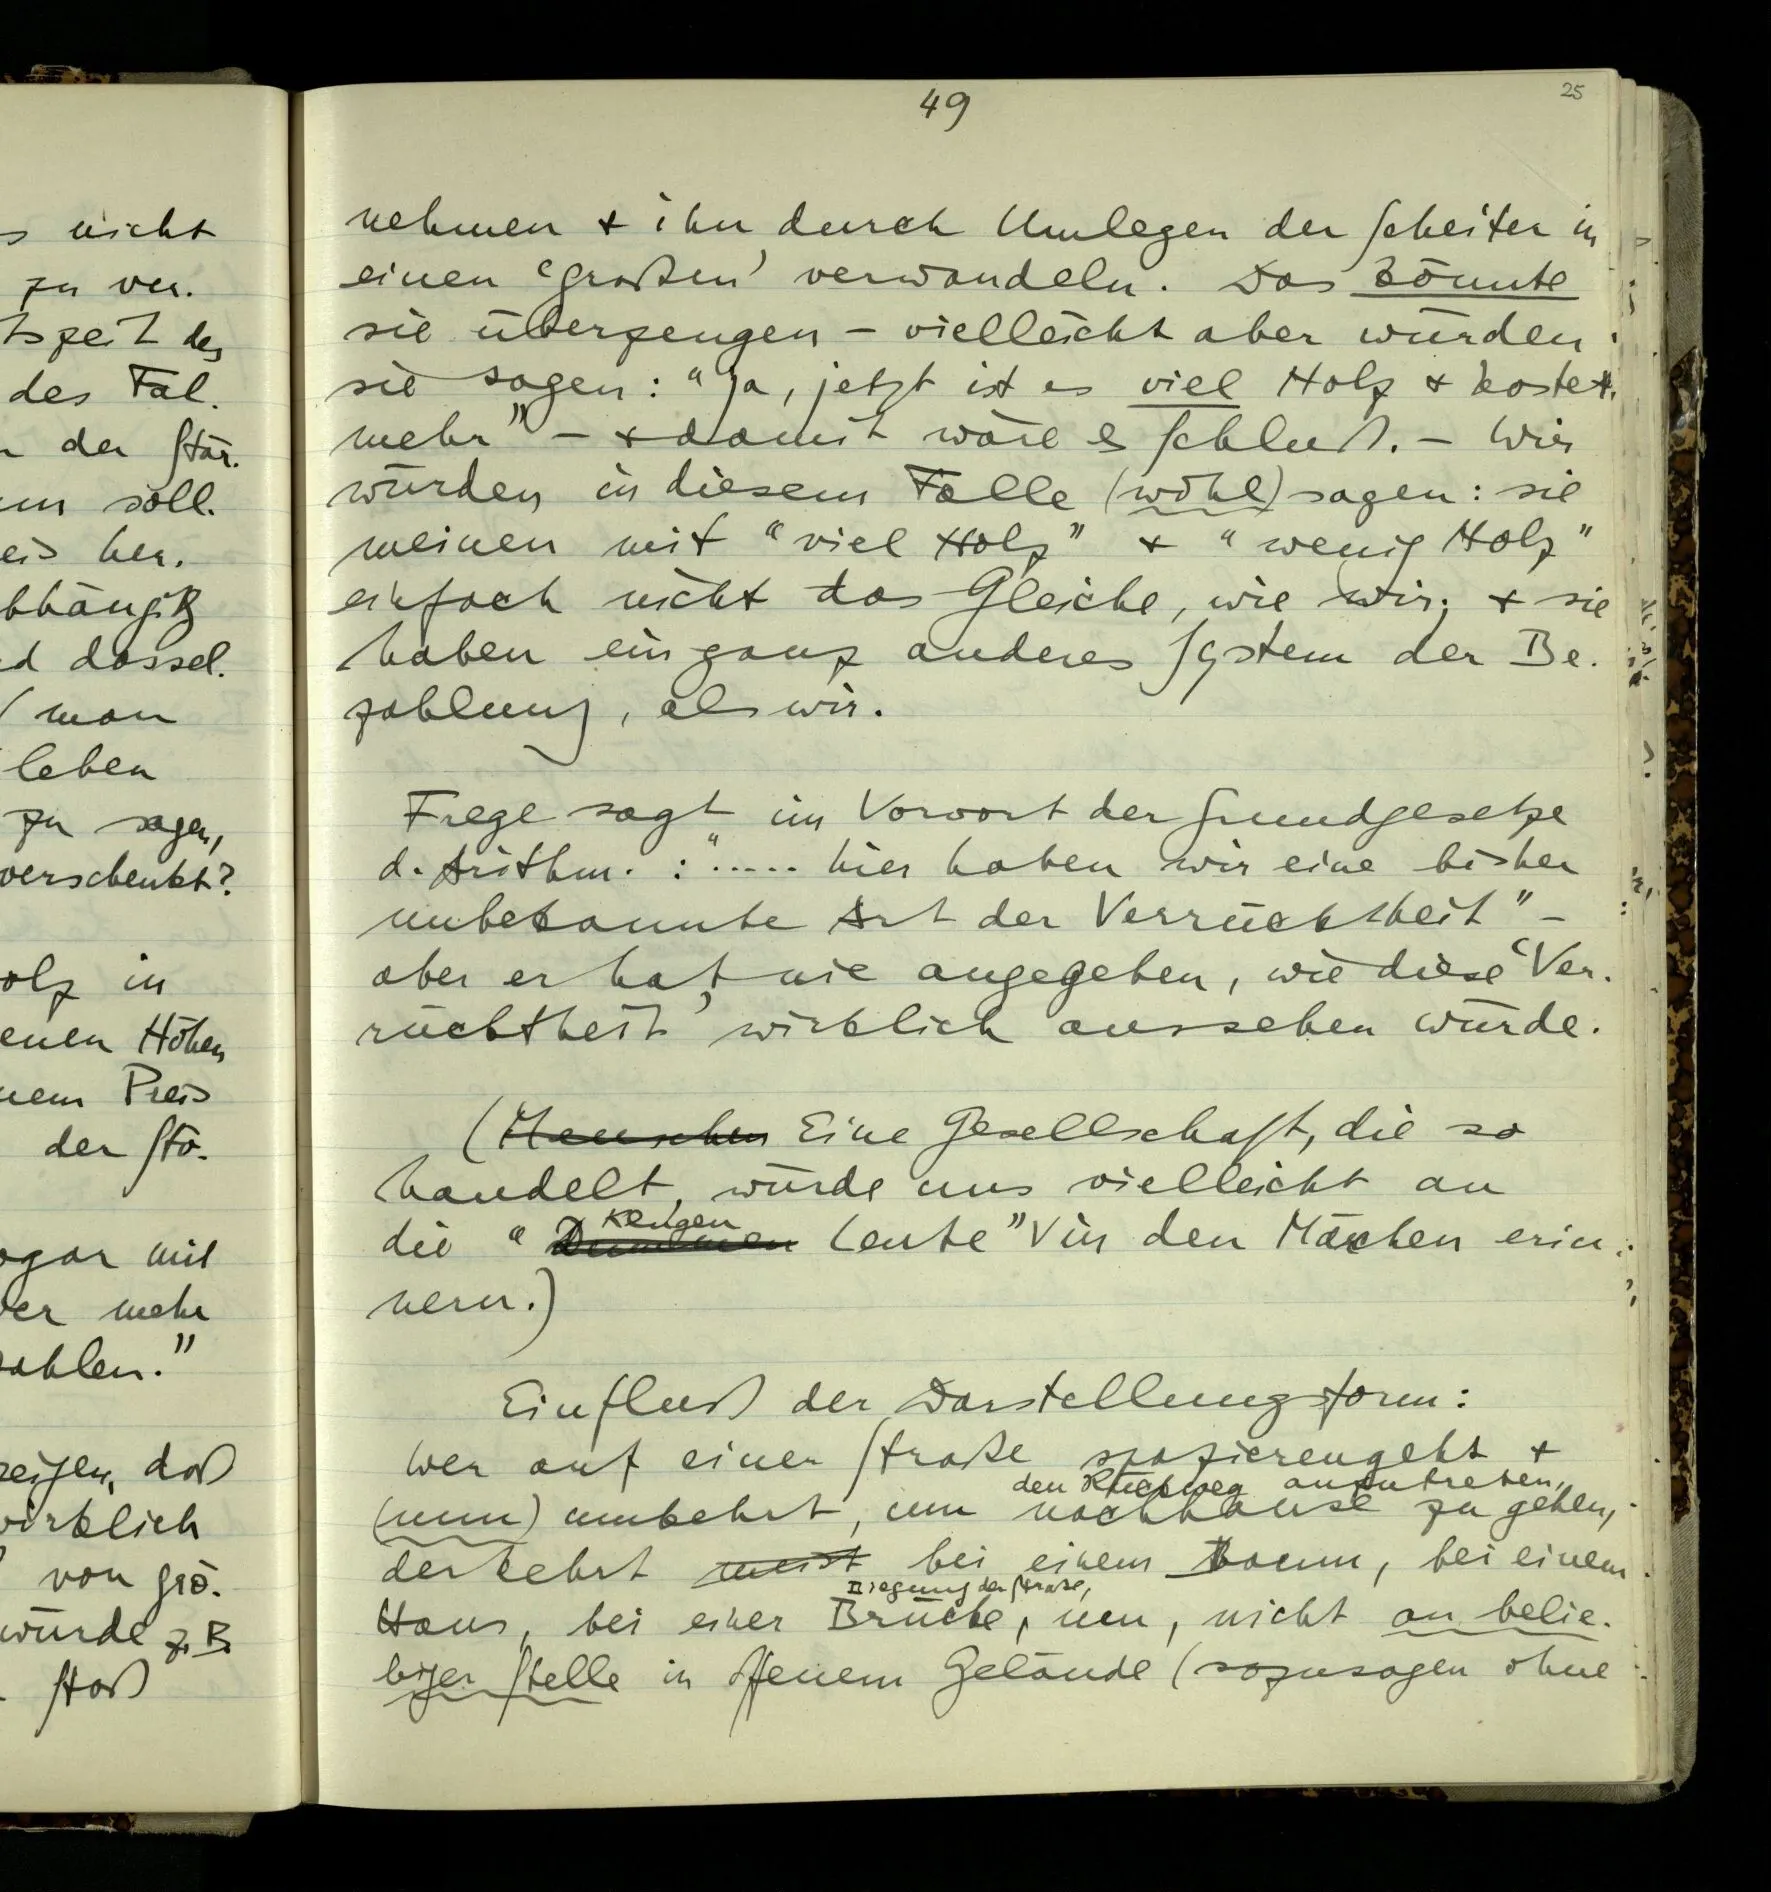 s nicht
zu ver.
tszeit des
des Fal.
n der Stär.
nn soll.
eis her.
bhängig
d dassel.
man
leben
zu sagen,
verschenkt?
olz in
enen Höhen
nem Preis
der Stö.
ogar mit
er mehr
zahlen."
zeigen, daß
wirklich
von grö.
würde z.B.
Stoß
49
25
nehmen & ihn durch Umlegen der Scheiter in
einen 'großen' verwandeln. Das könnte
sie überzeugen – vielleicht aber würden
sie sagen: "ja, jetzt ist es viel Holz & kostet
mehr" – & damit wäre es Schluß. – Wir
würden in diesem Falle (wohl) sagen: sie
meinen mit "viel Holz" & "wenig Holz"
einfach nicht das Gleiche, wie wir; & sie
haben ein ganz anderes System der Be.
zahlung, als wir.
Frege sagt im Vorwort der Grundgesetze
d. Arithm. : "..... hier haben wir eine bisher
unbekannte Art der Verrücktheit" –
aber er hat nie angegeben, wie diese 'Ver.
rücktheit' wirklich aussehen würde.
(Menschen Eine Gesellschaft, die so
handelt, würde uns vielleicht an
klugen
die "Dummen Leute" in den Märchen erin.
nern.)
Einfluß der Darstellungsform:
Wer auf einer Straße spazierengeht &
den Rückweg anzutreten,
(nun) umkehrt, um nachhause zu gehen,
der kehrt meist bei einem Baum, bei einem
Biegung der Straße,
Haus, bei einer Brücke, um, nicht an belie.
biger Stelle in offenem Gelände (sozusagen ohne